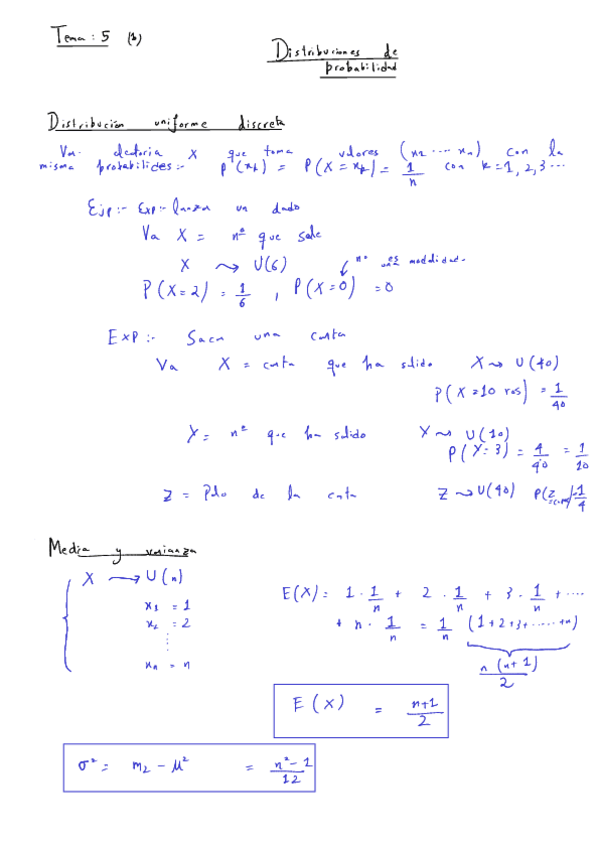 Tema: 5 (1)
Distribuciones de
probabilidad
Distribución uniforme discreta
Va. aleatoria X que toma valores (x1 ... xn) con la
misma probabilides:- P(xk) = P(X = xk) = 1/n con k = 1, 2, 3 ...
Ejp:- Exp:- lanza un dado
Va X = nº que sale
X ⇝ U(6)
P(X=2) = 1/6 , P(X=0) = 0
Exp:- Saca una carta
Va X = carta que ha salido X ⇝ U(40)
P(X=10 ros) = 1/40
Y = nº que ha salido Y ⇝ U(10)
P(Y=3) = 4/40 = 1/10
Z = Palo de la carta Z ⇝ U(40)
Media y varianza
X → U(n)
x1 = 1
x2 = 2
⋮
xn = n
E(X) = 1 · 1/n + 2 · 1/n + 3 · 1/n + ....
+ n · 1/n = 1/n (1+2+3+......+n)
n(n+1)/2
E(X) = n+1/2
σ² = m2 - μ² = n²-1/12